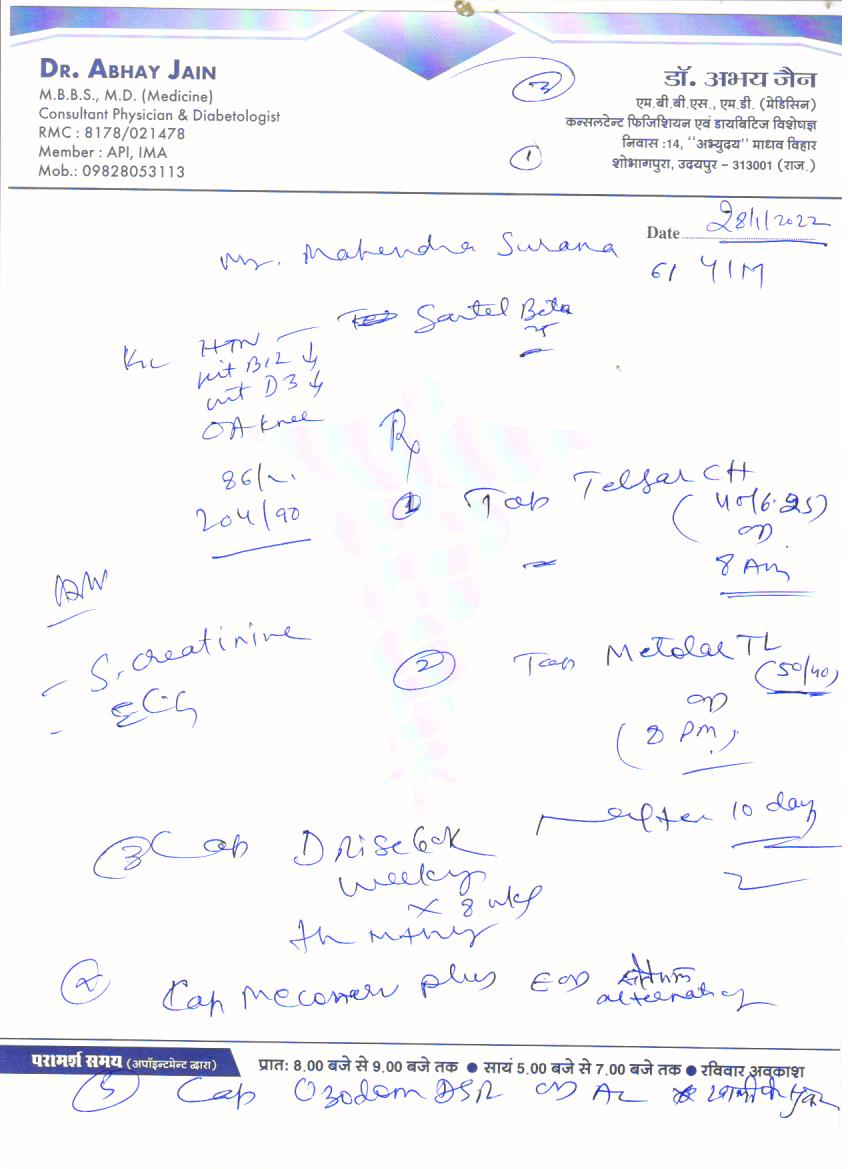 DR. ABHAY JAIN
M.B.B.S., M.D. (Medicine)
Consultant Physician & Diabetologist
RMC : 8178/021478
Member : API, IMA
Mob.: 09828053113
डॉ. अभय जैन
एम.बी.बी.एस., एम.डी. (मेडिसिन)
कन्सलटेन्ट फिजिशियन एवं डायबिटिज विशेषज्ञ
निवास :14, ‘‘अभ्युदय’’ माधव विहार
शोभागपुरा, उदयपुर – 313001 (राज.)
3
1
Date 28/1/2022
Mr. Mahendra Surana
61 Y/M
K/c HTN – Sartel Beta
25
vit B12 ↓
vit D3 ↓
OA knee
Rx
86/m.
204/90
① Tab Telsar CH
(40/6.25)
OD
8 Am
Adv
- S. creatinine
- ECG
② Tab Metolar TL
(50/40)
OD
(8 PM)
after 10 day
③ Cap D Rise 60K
weekly
x 8 wks
th
Cap plus EOD
alternate day
परामर्श समय (अपॉइन्टमेन्ट द्वारा)
प्रातः 8.00 बजे से 9.00 बजे तक ● सायं 5.00 बजे से 7.00 बजे तक ● रविवार अवकाश
⑤ Cap Ozodom DSR OD AC